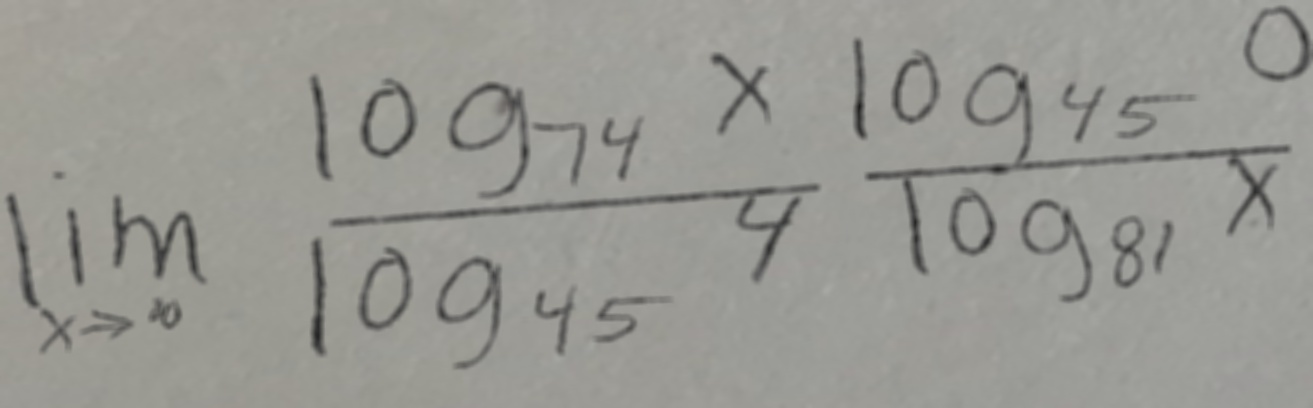 lim x→∞ log₇₄ x / log₄₅ 4 log₄₅ 0 / log₈₁ x